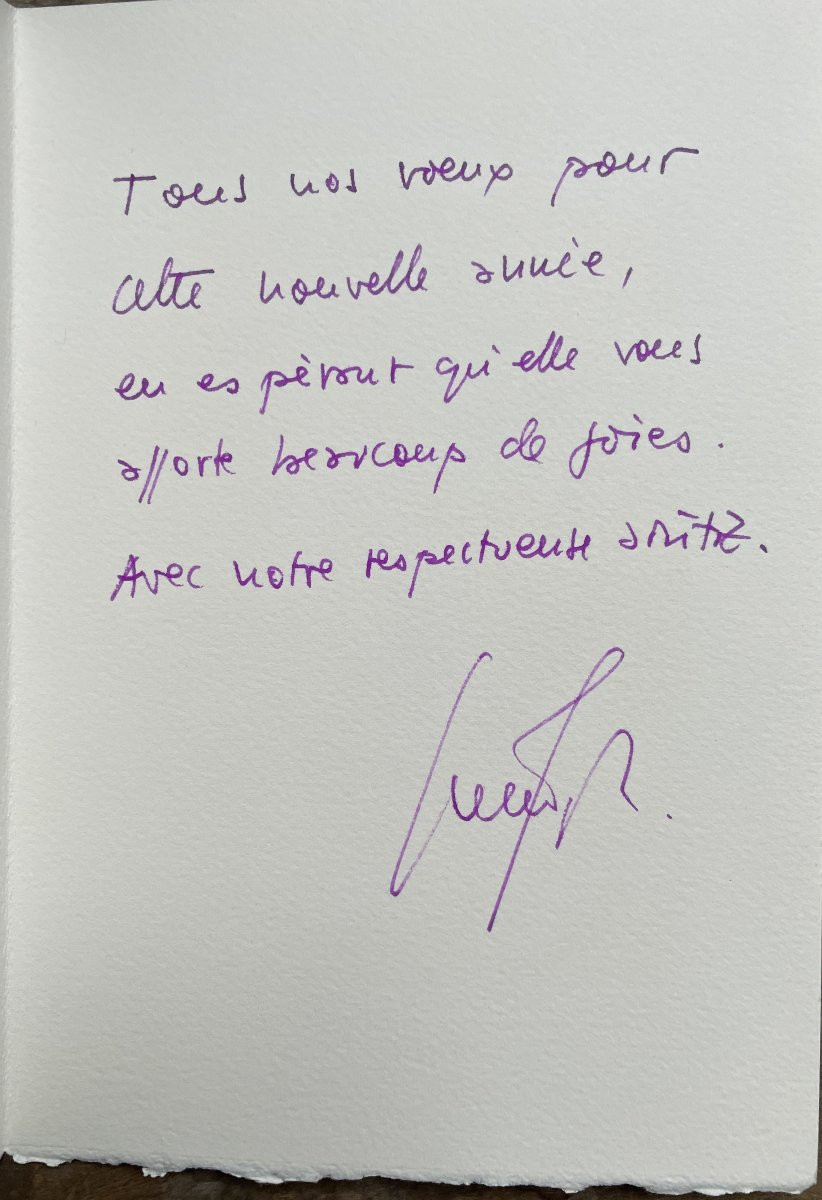 Tous nos vœux pour
cette nouvelle année,
en espérant qu'elle vous
apporte beaucoup de joies.
Avec notre respectueuse amitié.